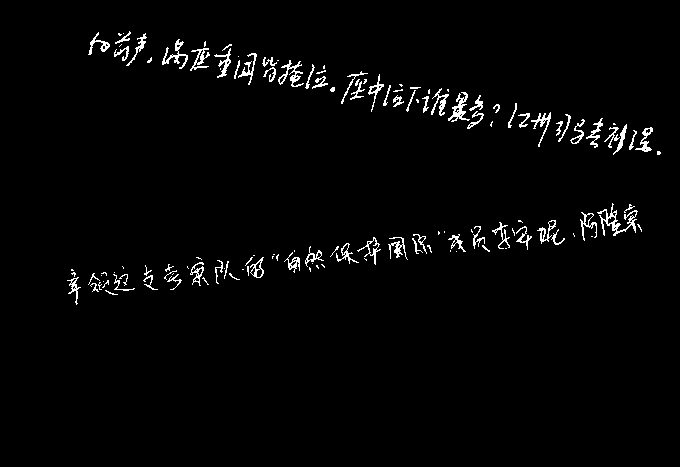 向前声,满座重闻皆掩泣。座中泣下谁最多?江州司马青衫湿。
率领这支考察队的“自然保护国际”成员李车妮、阿隆索